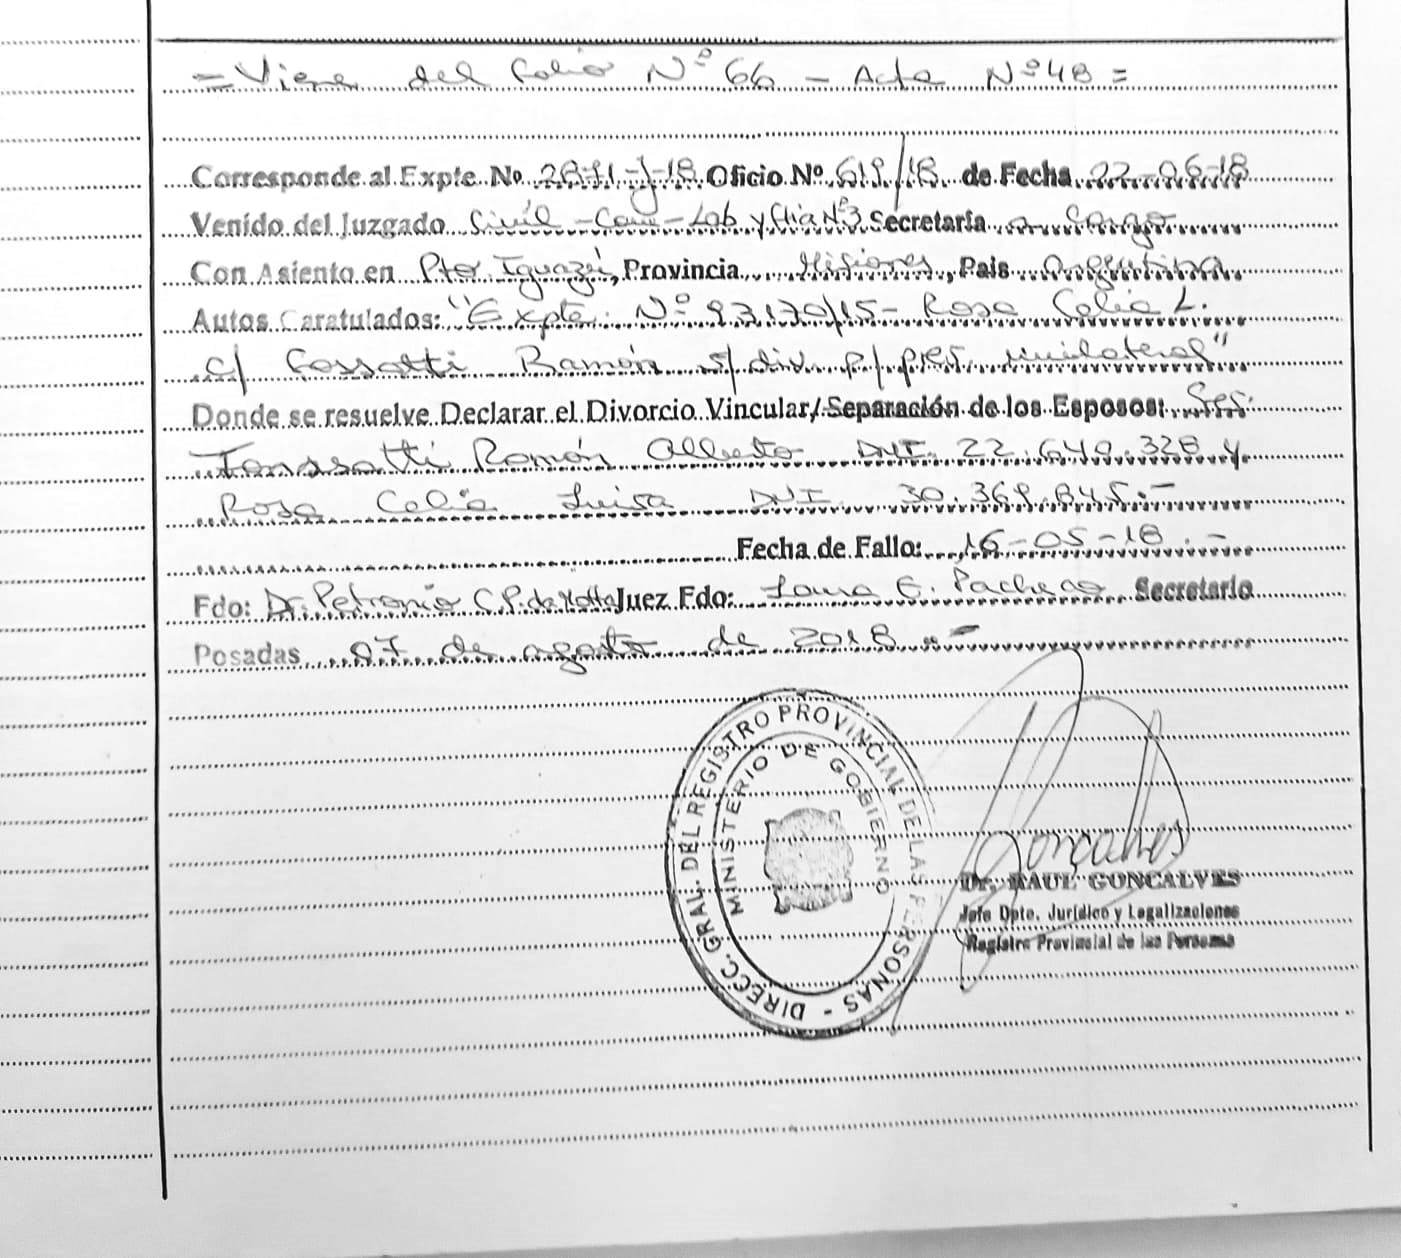 = Viene del Folio Nº 66 - Acta Nº 48 =
Corresponde al Expte. Nº 2811-J-18 Oficio Nº 619/18 de Fecha 22-06-18
Venido del Juzgado Civil - Com - Lab y Flia Nº3 Secretaría a cargo
Con Asiento en Pto. Iguazú, Provincia Misiones, Pais Argentina
Autos Caratulados: "Expte. Nº 93170/15 - Rosa Celia L.
c/ Fossatti Ramón s/ div. p/ pres. unilateral"
Donde se resuelve Declarar el Divorcio Vincular/Separación de los Esposos: Sres.
Ramón Alberto DNI. 22.640.328 y
Rosa Celia Luisa DNI 30.369.845.-
Fecha de Fallo: 16-05-18.-
Fdo: Dr. Petronio C.P. da Motta Juez Fdo: E. Pacheco Secretario
Posadas 07 de agosto de 2018.-
DIRECC. GRAL. DEL REGISTRO PROVINCIAL DE LAS PERSONAS -
MINISTERIO DE GOBIERNO
Gonçalves
Dr. RAUL GONCALVES
Jefe Dpto. Jurídico y Legalizaciones
Registro Provincial de las Personas